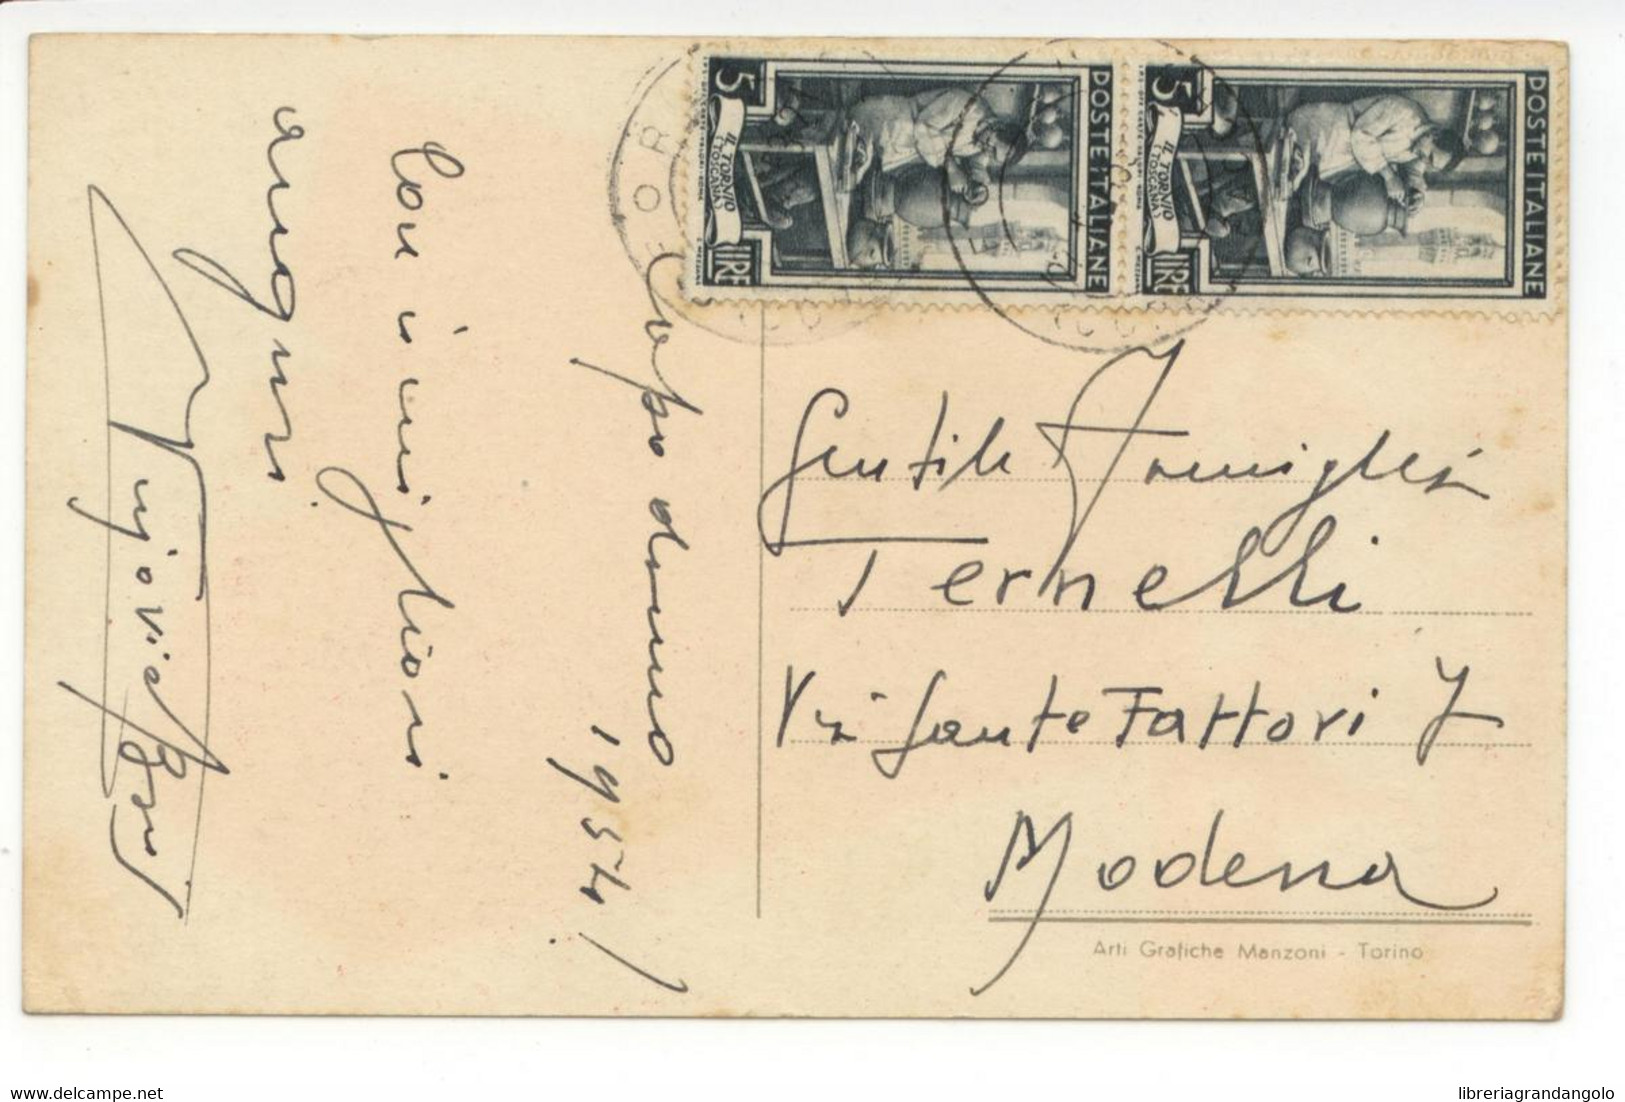 Capo d'anno
1954!
Con i migliori
auguri
POSTE ITALIANE
5 LIRE
IL TORNIO
(TOSCANA)
POSTE ITALIANE
5 LIRE
IL TORNIO
(TOSCANA)
Gentile Famiglia
Ternelli
Via Sante Fattori 7
Modena
Arti Grafiche Manzoni - Torino
delcampe.net
libreriagrandangolo